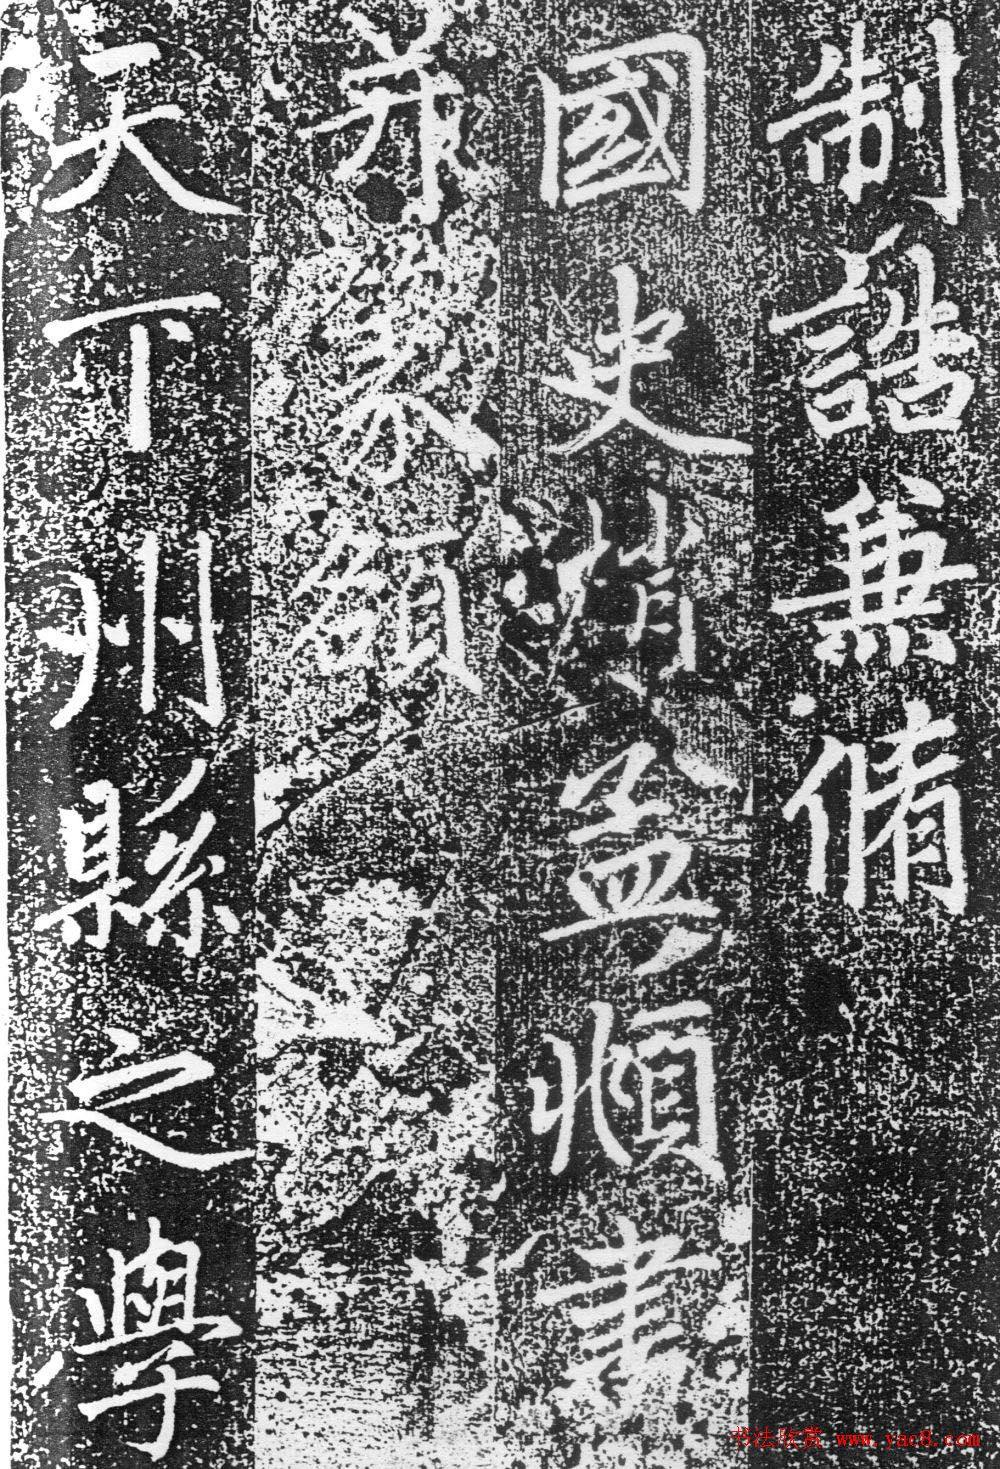 制誥兼脩
國史趙孟頫書
并篆額
天下州縣之學
书法欣赏 www.yac8.com